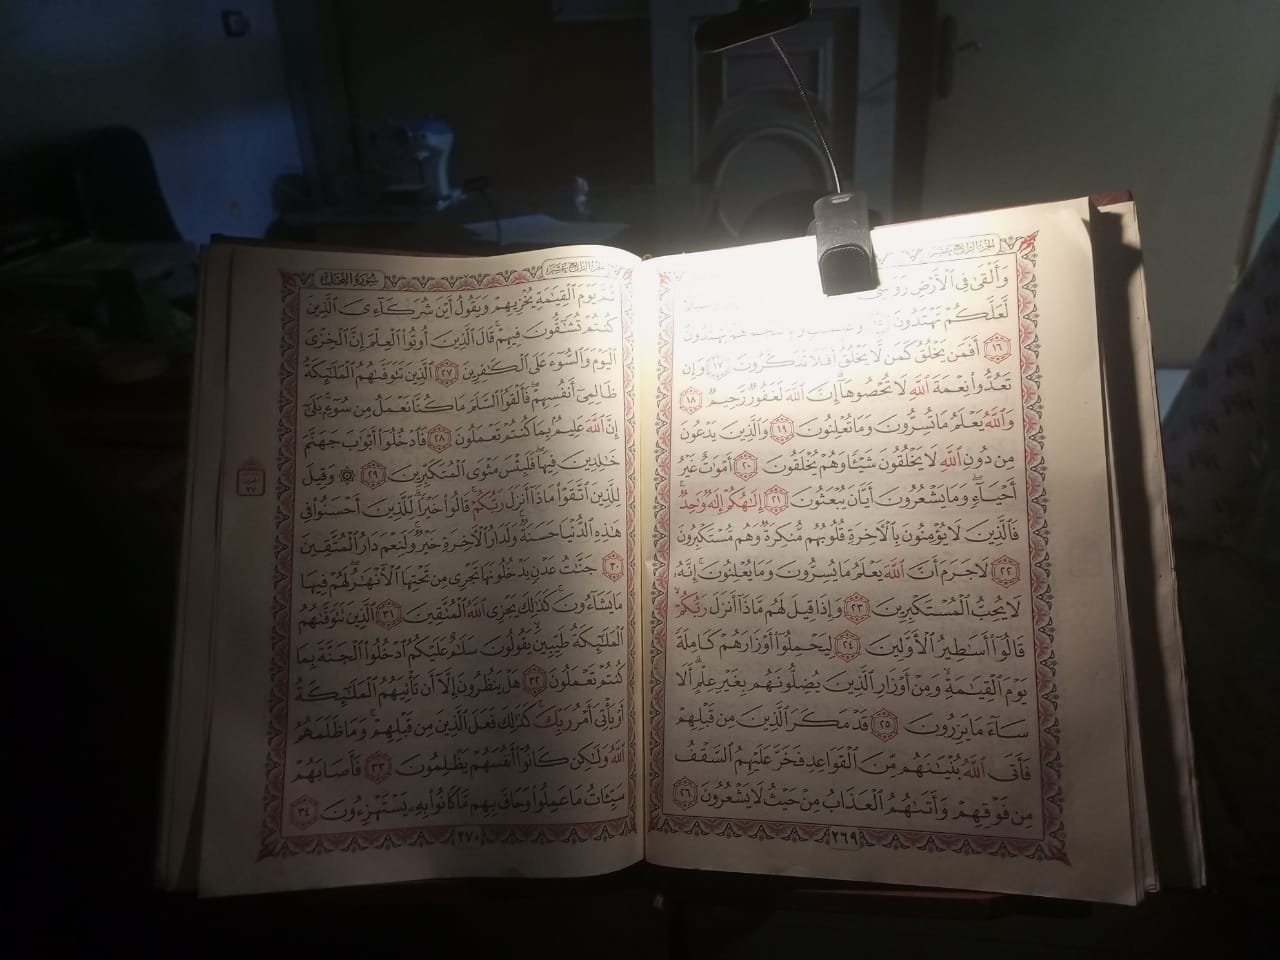 الجزء الرابع عشر
وَأَلْقَىٰ فِى ٱلْأَرْضِ رَوَٰسِىَ
لَّعَلَّكُمْ تَهْتَدُونَ هُمْ يَهْتَدُونَ
١٦ أَفَمَن يَخْلُقُ كَمَن لَّا يَخْلُقُ أَفَلَا تَذَكَّرُونَ ١٧ وَإِن
تَعُدُّوا۟ نِعْمَةَ ٱللَّهِ لَا تُحْصُوهَآ إِنَّ ٱللَّهَ لَغَفُورٌ رَّحِيمٌ ١٨
وَٱللَّهُ يَعْلَمُ مَا تُسِرُّونَ وَمَا تُعْلِنُونَ ١٩ وَٱلَّذِينَ يَدْعُونَ
مِن دُونِ ٱللَّهِ لَا يَخْلُقُونَ شَيْـًٔا وَهُمْ يُخْلَقُونَ ٢٠ أَمْوَٰتٌ غَيْرُ
أَحْيَآءٍ وَمَا يَشْعُرُونَ أَيَّانَ يُبْعَثُونَ ٢١ إِلَـٰهُكُمْ إِلَـٰهٌ وَٰحِدٌ
فَٱلَّذِينَ لَا يُؤْمِنُونَ بِٱلْـَٔاخِرَةِ قُلُوبُهُم مُّنكِرَةٌ وَهُم مُّسْتَكْبِرُونَ
٢٢ لَا جَرَمَ أَنَّ ٱللَّهَ يَعْلَمُ مَا يُسِرُّونَ وَمَا يُعْلِنُونَ إِنَّهُۥ
لَا يُحِبُّ ٱلْمُسْتَكْبِرِينَ ٢٣ وَإِذَا قِيلَ لَهُم مَّاذَآ أَنزَلَ رَبُّكُمْ
قَالُوٓا۟ أَسَـٰطِيرُ ٱلْأَوَّلِينَ ٢٤ لِيَحْمِلُوٓا۟ أَوْزَارَهُمْ كَامِلَةً
يَوْمَ ٱلْقِيَـٰمَةِ وَمِنْ أَوْزَارِ ٱلَّذِينَ يُضِلُّونَهُم بِغَيْرِ عِلْمٍ أَلَا
سَآءَ مَا يَزِرُونَ ٢٥ قَدْ مَكَرَ ٱلَّذِينَ مِن قَبْلِهِمْ
فَأَتَى ٱللَّهُ بُنْيَـٰنَهُم مِّنَ ٱلْقَوَاعِدِ فَخَرَّ عَلَيْهِمُ ٱلسَّقْفُ
مِن فَوْقِهِمْ وَأَتَىٰهُمُ ٱلْعَذَابُ مِنْ حَيْثُ لَا يَشْعُرُونَ ٢٦
٢٦٩
الجزء الرابع عشر سورة النحل
ثُمَّ يَوْمَ ٱلْقِيَـٰمَةِ يُخْزِيهِمْ وَيَقُولُ أَيْنَ شُرَكَآءِىَ ٱلَّذِينَ
كُنتُمْ تُشَـٰٓقُّونَ فِيهِمْ قَالَ ٱلَّذِينَ أُوتُوا۟ ٱلْعِلْمَ إِنَّ ٱلْخِزْىَ
ٱلْيَوْمَ وَٱلسُّوٓءَ عَلَى ٱلْكَـٰفِرِينَ ٢٧ ٱلَّذِينَ تَتَوَفَّىٰهُمُ ٱلْمَلَـٰٓئِكَةُ
ظَالِمِىٓ أَنفُسِهِمْ فَأَلْقَوُا۟ ٱلسَّلَمَ مَا كُنَّا نَعْمَلُ مِن سُوٓءٍ بَلَىٰٓ
إِنَّ ٱللَّهَ عَلِيمٌۢ بِمَا كُنتُمْ تَعْمَلُونَ ٢٨ فَٱدْخُلُوٓا۟ أَبْوَٰبَ جَهَنَّمَ
خَـٰلِدِينَ فِيهَا فَلَبِئْسَ مَثْوَى ٱلْمُتَكَبِّرِينَ ٢٩ ۞ وَقِيلَ
لِلَّذِينَ ٱتَّقَوْا۟ مَاذَآ أَنزَلَ رَبُّكُمْ قَالُوا۟ خَيْرًا لِّلَّذِينَ أَحْسَنُوا۟ فِى
هَـٰذِهِ ٱلدُّنْيَا حَسَنَةٌ وَلَدَارُ ٱلْـَٔاخِرَةِ خَيْرٌ وَلَنِعْمَ دَارُ ٱلْمُتَّقِينَ
٣٠ جَنَّـٰتُ عَدْنٍ يَدْخُلُونَهَا تَجْرِى مِن تَحْتِهَا ٱلْأَنْهَـٰرُ لَهُمْ فِيهَا
مَا يَشَآءُونَ كَذَٰلِكَ يَجْزِى ٱللَّهُ ٱلْمُتَّقِينَ ٣١ ٱلَّذِينَ تَتَوَفَّىٰهُمُ
ٱلْمَلَـٰٓئِكَةُ طَيِّبِينَ يَقُولُونَ سَلَـٰمٌ عَلَيْكُمُ ٱدْخُلُوا۟ ٱلْجَنَّةَ بِمَا
كُنتُمْ تَعْمَلُونَ ٣٢ هَلْ يَنظُرُونَ إِلَّآ أَن تَأْتِيَهُمُ ٱلْمَلَـٰٓئِكَةُ
أَوْ يَأْتِىَ أَمْرُ رَبِّكَ كَذَٰلِكَ فَعَلَ ٱلَّذِينَ مِن قَبْلِهِمْ وَمَا ظَلَمَهُمُ
ٱللَّهُ وَلَـٰكِن كَانُوٓا۟ أَنفُسَهُمْ يَظْلِمُونَ ٣٣ فَأَصَابَهُمْ
سَيِّـَٔاتُ مَا عَمِلُوا۟ وَحَاقَ بِهِم مَّا كَانُوا۟ بِهِۦ يَسْتَهْزِءُونَ ٣٤
٢٧٠